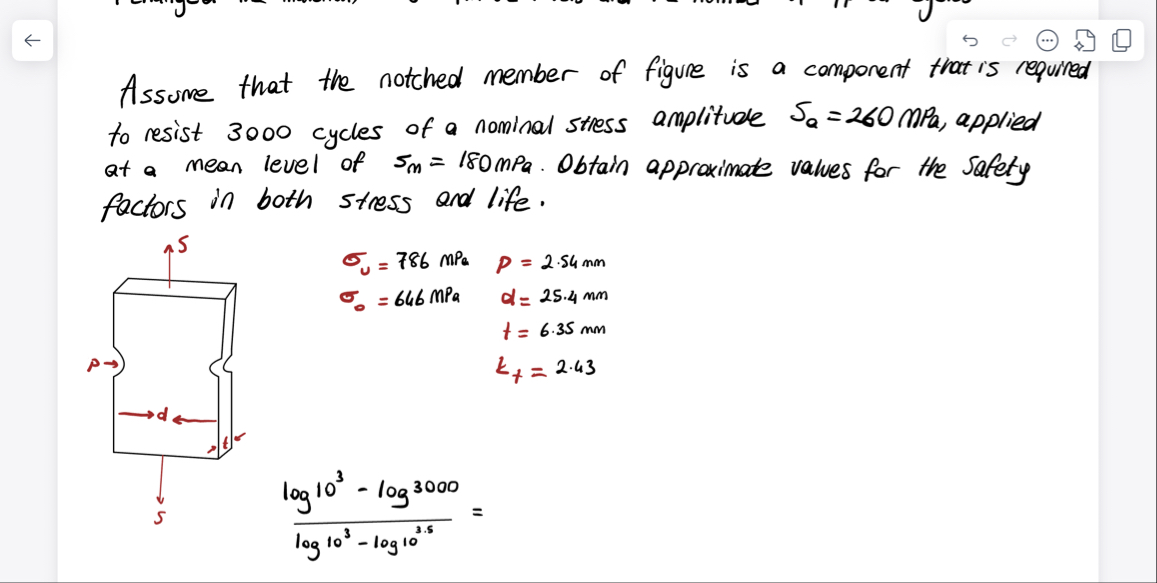 Assume that the notched member of figure is a component that is required
to resist 3000 cycles of a nominal stress amplitude Sa = 260 MPa, applied
at a mean level of Sm = 180 mPa. Obtain approximate values for the Safety
factors in both stress and life.
S
σu = 786 MPa
ρ = 2.54 mm
σo = 646 MPa
d = 25.4 mm
t = 6.35 mm
ρ→
kt = 2.43
→d←
t
S
log 10³ - log 3000
=
log 10³ - log 10^3.5